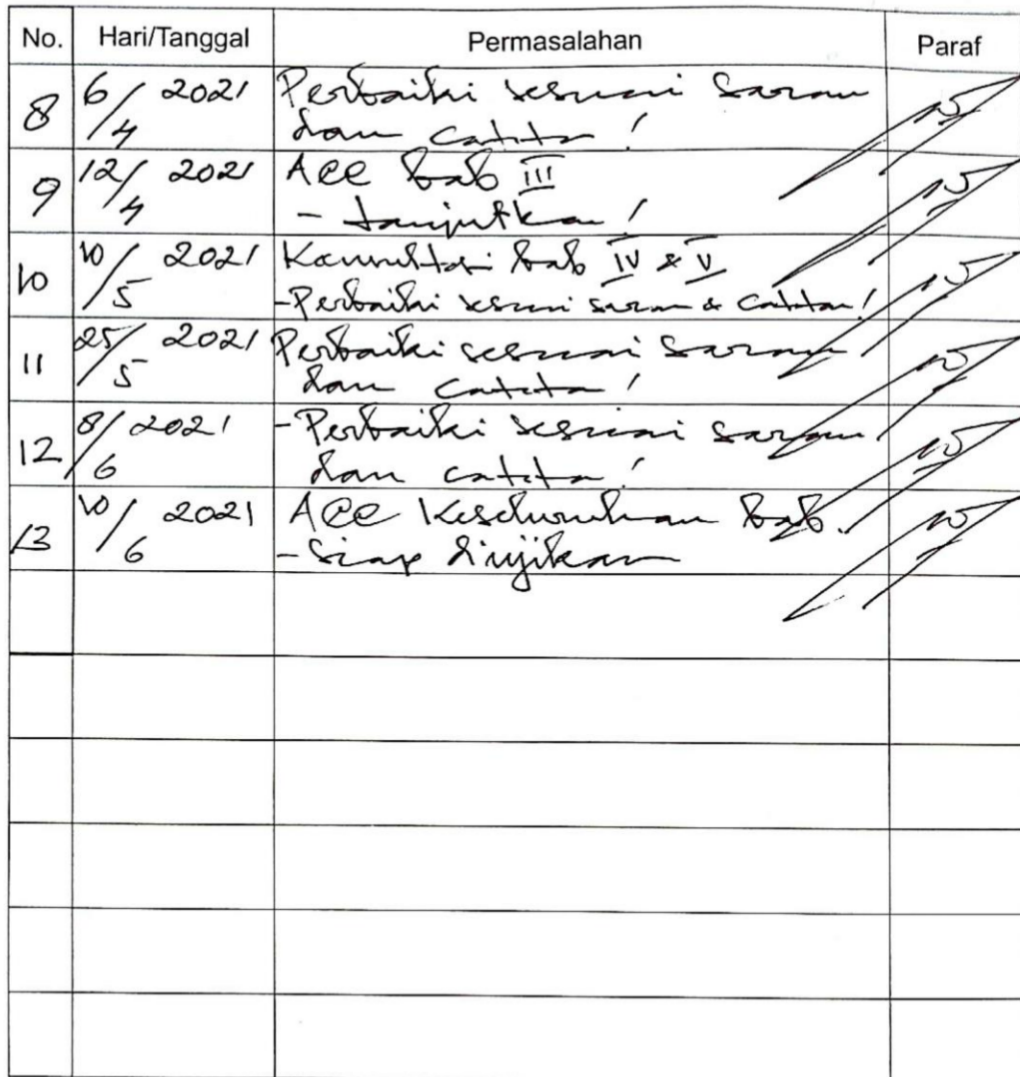 No. Hari/Tanggal Permasalahan Paraf
8 6/4 2021 Perbaiki sesuai saran
dan catatan !
9 12/4 2021 ACC bab III
- Lanjutkan !
10 10/5 2021 Konsultasi bab IV & V
- Perbaiki sesuai saran & catatan !
11 25/5 2021 Perbaiki sesuai saran
dan catatan !
12 8/6 2021 - Perbaiki sesuai saran
dan catatan !
13 10/6 2021 ACC Keseluruhan bab.
- Siap diujikan